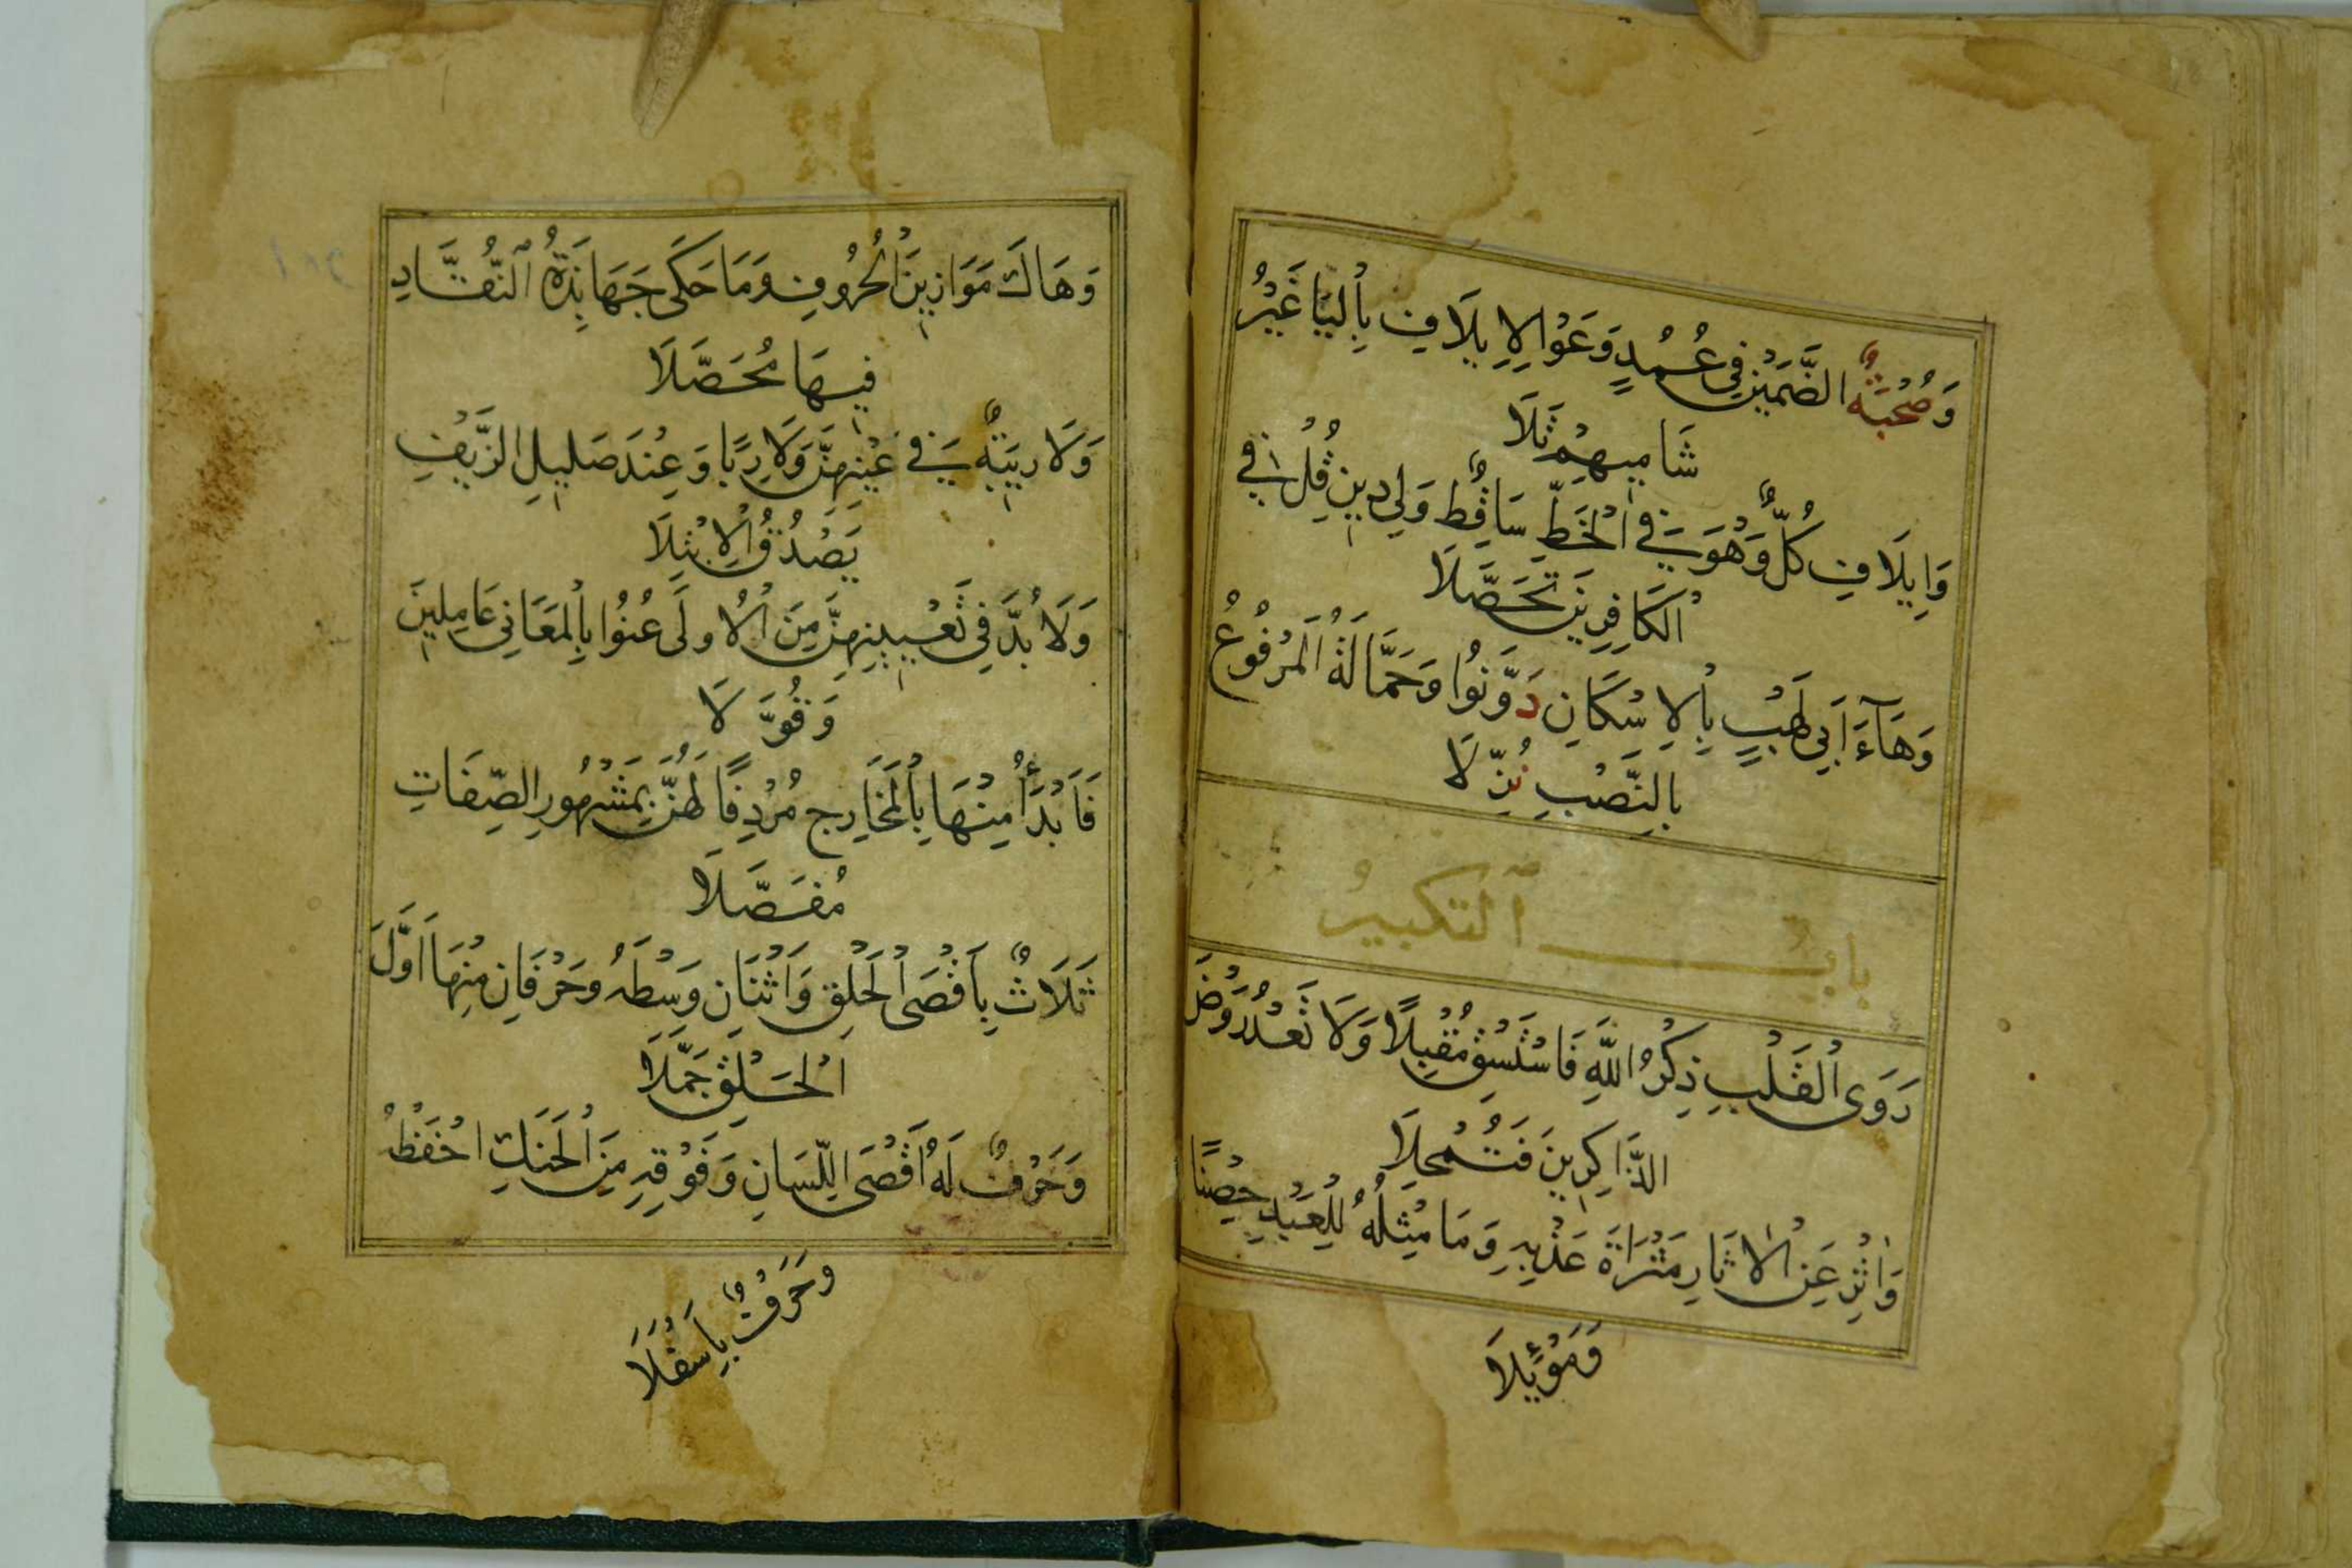 وَصُحْبَةٌ الضَّمَّيْنِ فِي عُمُدٍ وَعَوْا لِإِيلَافِ بِالْيَا غَيْرُ
شَامِيهِمْ تَلَا
وَإِيلَافِ كُلٌّ وَهُوَ فِي الْخَطِّ سَاقِطٌ وَلِي دِينِ قُلْ فِي
الْكَافِرِينَ تَحَصَّلَا
وَهَاءَ أَبِي لَهْبٍ بِالْإِسْكَانِ دَوَّنُوا وَحَمَّالَةُ الْمَرْفُوعُ
بِالنَّصْبِ نُزِّلَا
بَابُ التَّكْبِيرُ
رَوَى الْقَلْبِ ذِكْرُ اللَّهِ فَاسْتَسْقِ مُقْبِلًا وَلَا تَعْدُ رَوْضَ
الذَّاكِرِينَ فَتُمْحِلَا
وَاثْرِ عَنِ الْآثَارِ مَثْرَاةَ عَذْبِهِ وَمَا مِثْلُهُ لِلْعَبْدِ حِصْنًا
وَمَوْئِلَا
وَهَاكَ مَوَازِينَ الْحُرُوفِ وَمَا حَكَى جَهَابِذَةُ النُّقَّادِ
فِيهَا مُحَصَّلَا
وَلَا رِيبَةٌ فِي عَيْنِهِنَّ وَلَا رِبًا وَعِنْدَ صَلِيلِ الزَّيْفِ
يَصْدُقُ الِابْتِلَا
وَلَا بُدَّ فِي تَعْيِينِهِنَّ مِنَ الْأُولَى عُنُوا بِالْمَعَانِي عَامِلِينَ
وَقُوَّلَا
فَابْدَأْ مِنْهَا بِالْمَخَارِجِ مُرْدِفًا لَهُنَّ بِمَشْهُورِ الصِّفَاتِ
مُفَصَّلَا
ثَلَاثٌ بِأَقْصَى الْحَلْقِ وَاثْنَانِ وَسْطَهُ وَحَرْفَانِ مِنْهَا أَوَّلَ
الْحَلْقِ جَمَّلَا
وَحَرْفٌ لَهُ أَقْصَى اللِّسَانِ وَفَوْقِهِ مِنَ الْحَنَكِ احْفَظْهُ
وَحَرْفٌ بِأَسْفَلَا